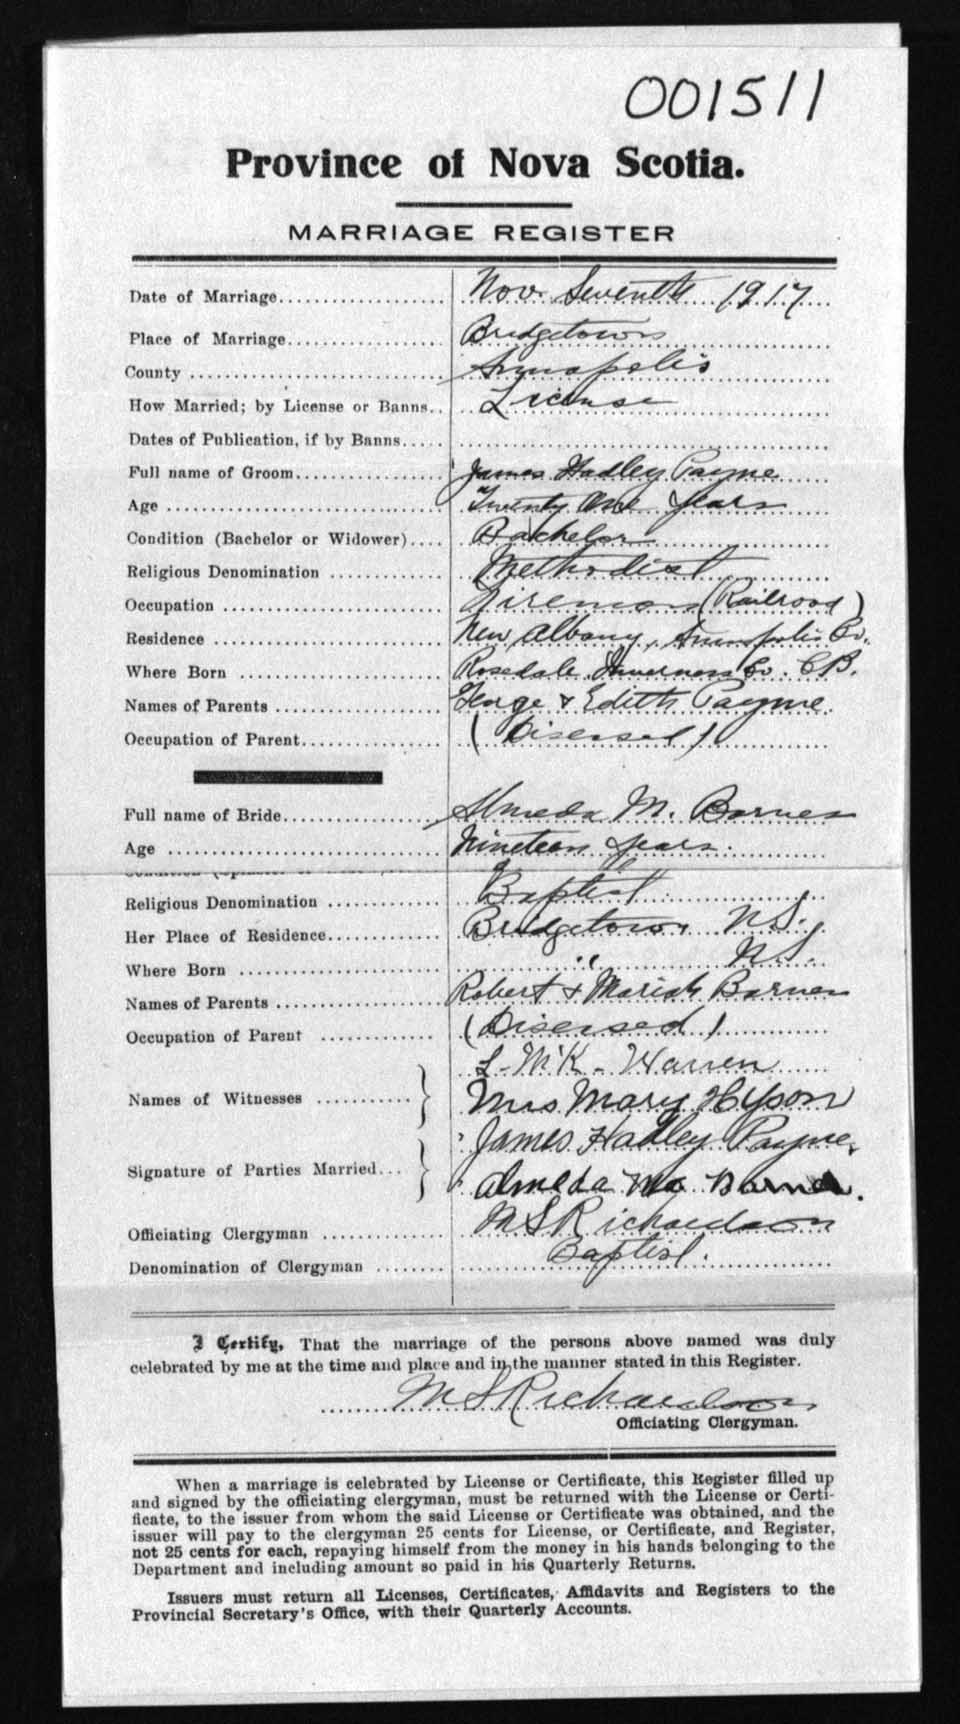 001511
Province of Nova Scotia.
MARRIAGE REGISTER
Date of Marriage.................... Nov. Seventh 1917
Place of Marriage................... Bridgetown
County .............................. Annapolis
How Married; by License or Banns.. License
Dates of Publication, if by Banns.....
Full name of Groom.................. James Hadley Payne
Age .................................. Twenty One years
Condition (Bachelor or Widower).... Bachelor
Religious Denomination .............. Methodist
Occupation .......................... Fireman (Railroad)
Residence ........................... New Albany, Annapolis Co.
Where Born .......................... Rosedale Inverness Co. C.B.
Names of Parents .................... George & Edith Payne.
Occupation of Parent................. (Diseased)
Full name of Bride................... Almeda M. Barnes
Age .................................. Nineteen years.
Religious Denomination .............. Baptist
Her Place of Residence.............. Bridgetown N.S.
Where Born .......................... " N.S.
Names of Parents .................... Robert & Mariah Barnes
Occupation of Parent ................ (Diseased)
L. McK. Warren
Names of Witnesses ........... } Mrs Mary Hyson
James Hadley Payne.
Signature of Parties Married... } Almeda M. Barnes.
Officiating Clergyman ............... M S Richardson
Denomination of Clergyman ........ Baptist.
I Certify, That the marriage of the persons above named was duly
celebrated by me at the time and place and in the manner stated in this Register.
M S Richardson
Officiating Clergyman.
When a marriage is celebrated by License or Certificate, this Register filled up
and signed by the officiating clergyman, must be returned with the License or Certi-
ficate, to the issuer from whom the said License or Certificate was obtained, and the
issuer will pay to the clergyman 25 cents for License, or Certificate, and Register,
not 25 cents for each, repaying himself from the money in his hands belonging to the
Department and including amount so paid in his Quarterly Returns.
Issuers must return all Licenses, Certificates, Affidavits and Registers to the
Provincial Secretary's Office, with their Quarterly Accounts.